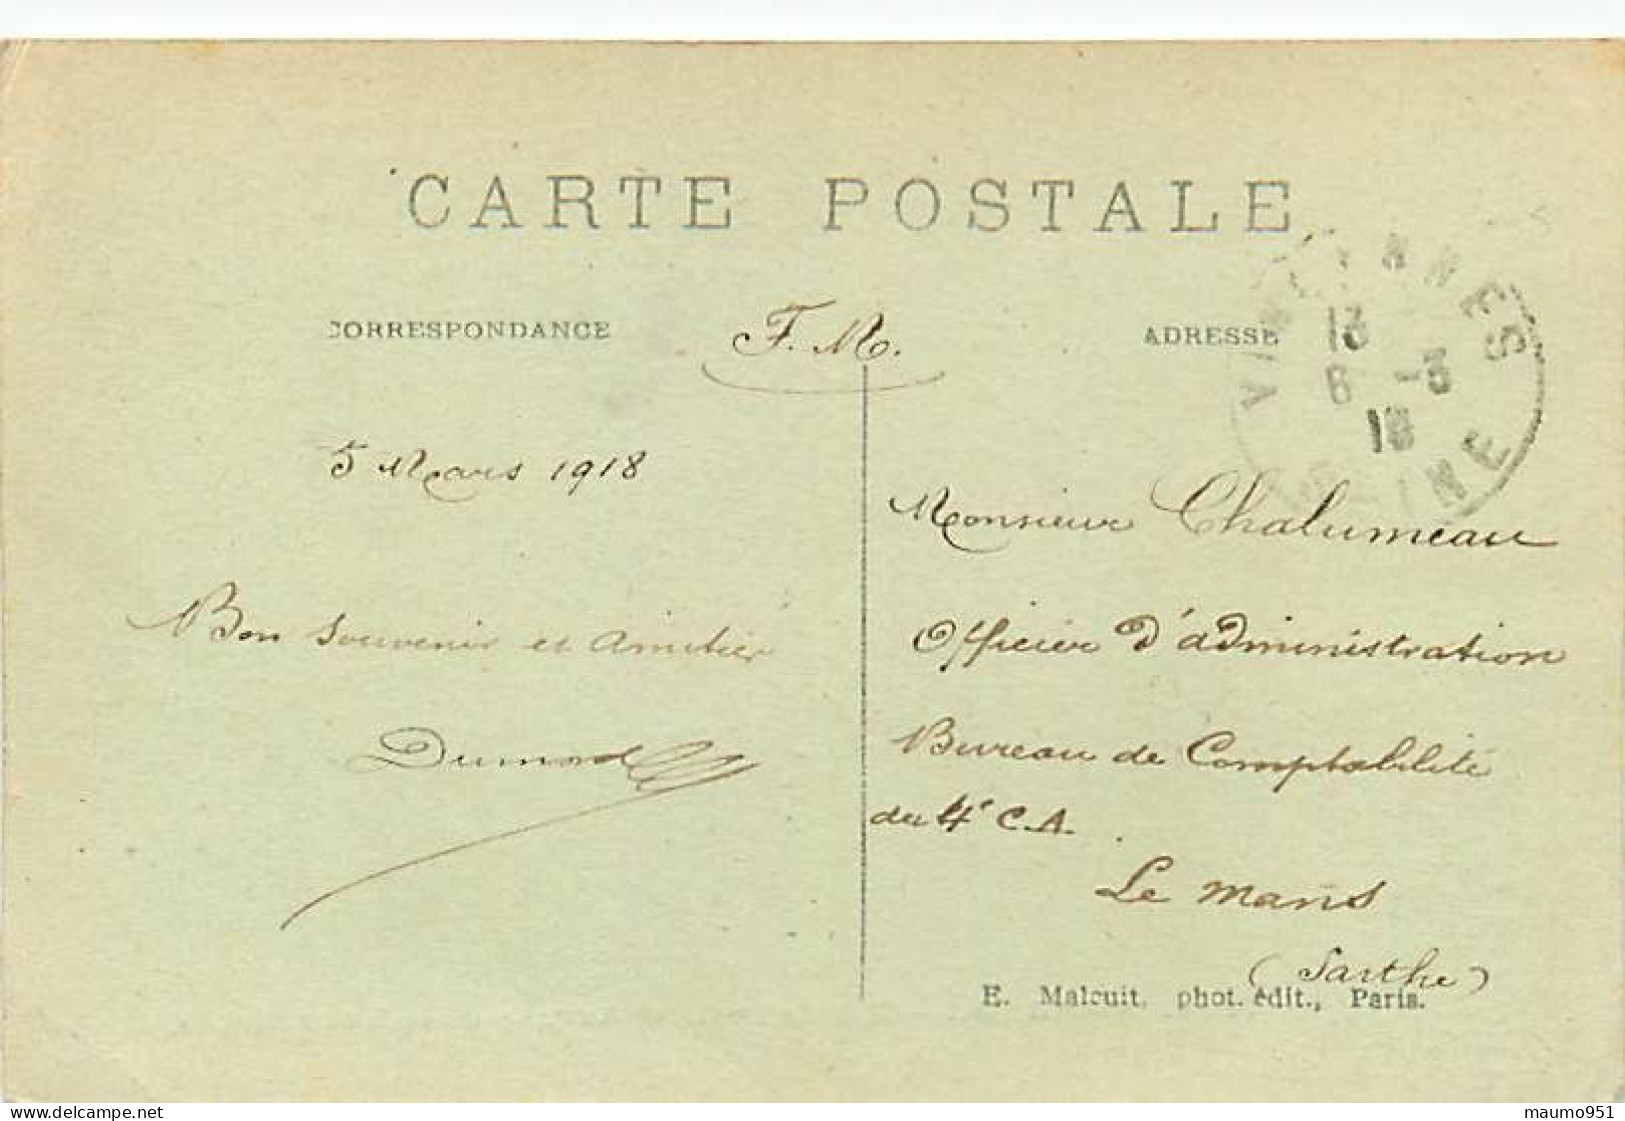 CARTE POSTALE
CORRESPONDANCE
F. M.
ADRESSE
VINCENNES
13
6 -3
18
SEINE
5 Mars 1918
Bon souvenir et amitié
Monsieur Chalumeau
Officier d'administration
Bureau de Comptabilité
du 4e C.A.
Le Mans
(Sarthe)
E. Malcuit, phot. édit., Paris.
www.delcampe.net
maumo951